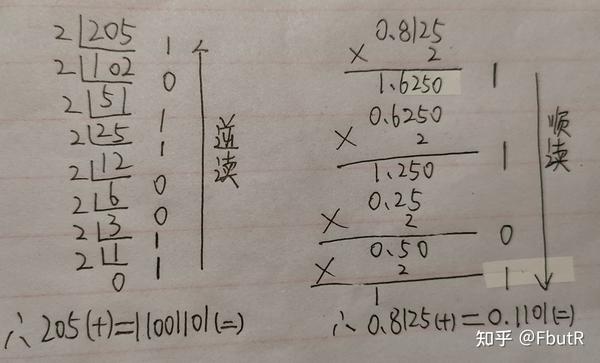 2 205 1
2 102 0
2 51 1
2 25 1
2 12 0
2 6 0
2 3 1
2 1 1
0
逆读
∴ 205(十)=11001101(二)
0.8125
× 2
1.6250 1
0.6250
× 2
1.250 1
0.25
× 2
0.50 0
× 2
1 1
顺读
∴ 0.8125(十)=0.1101(二)
知乎 @FbutR